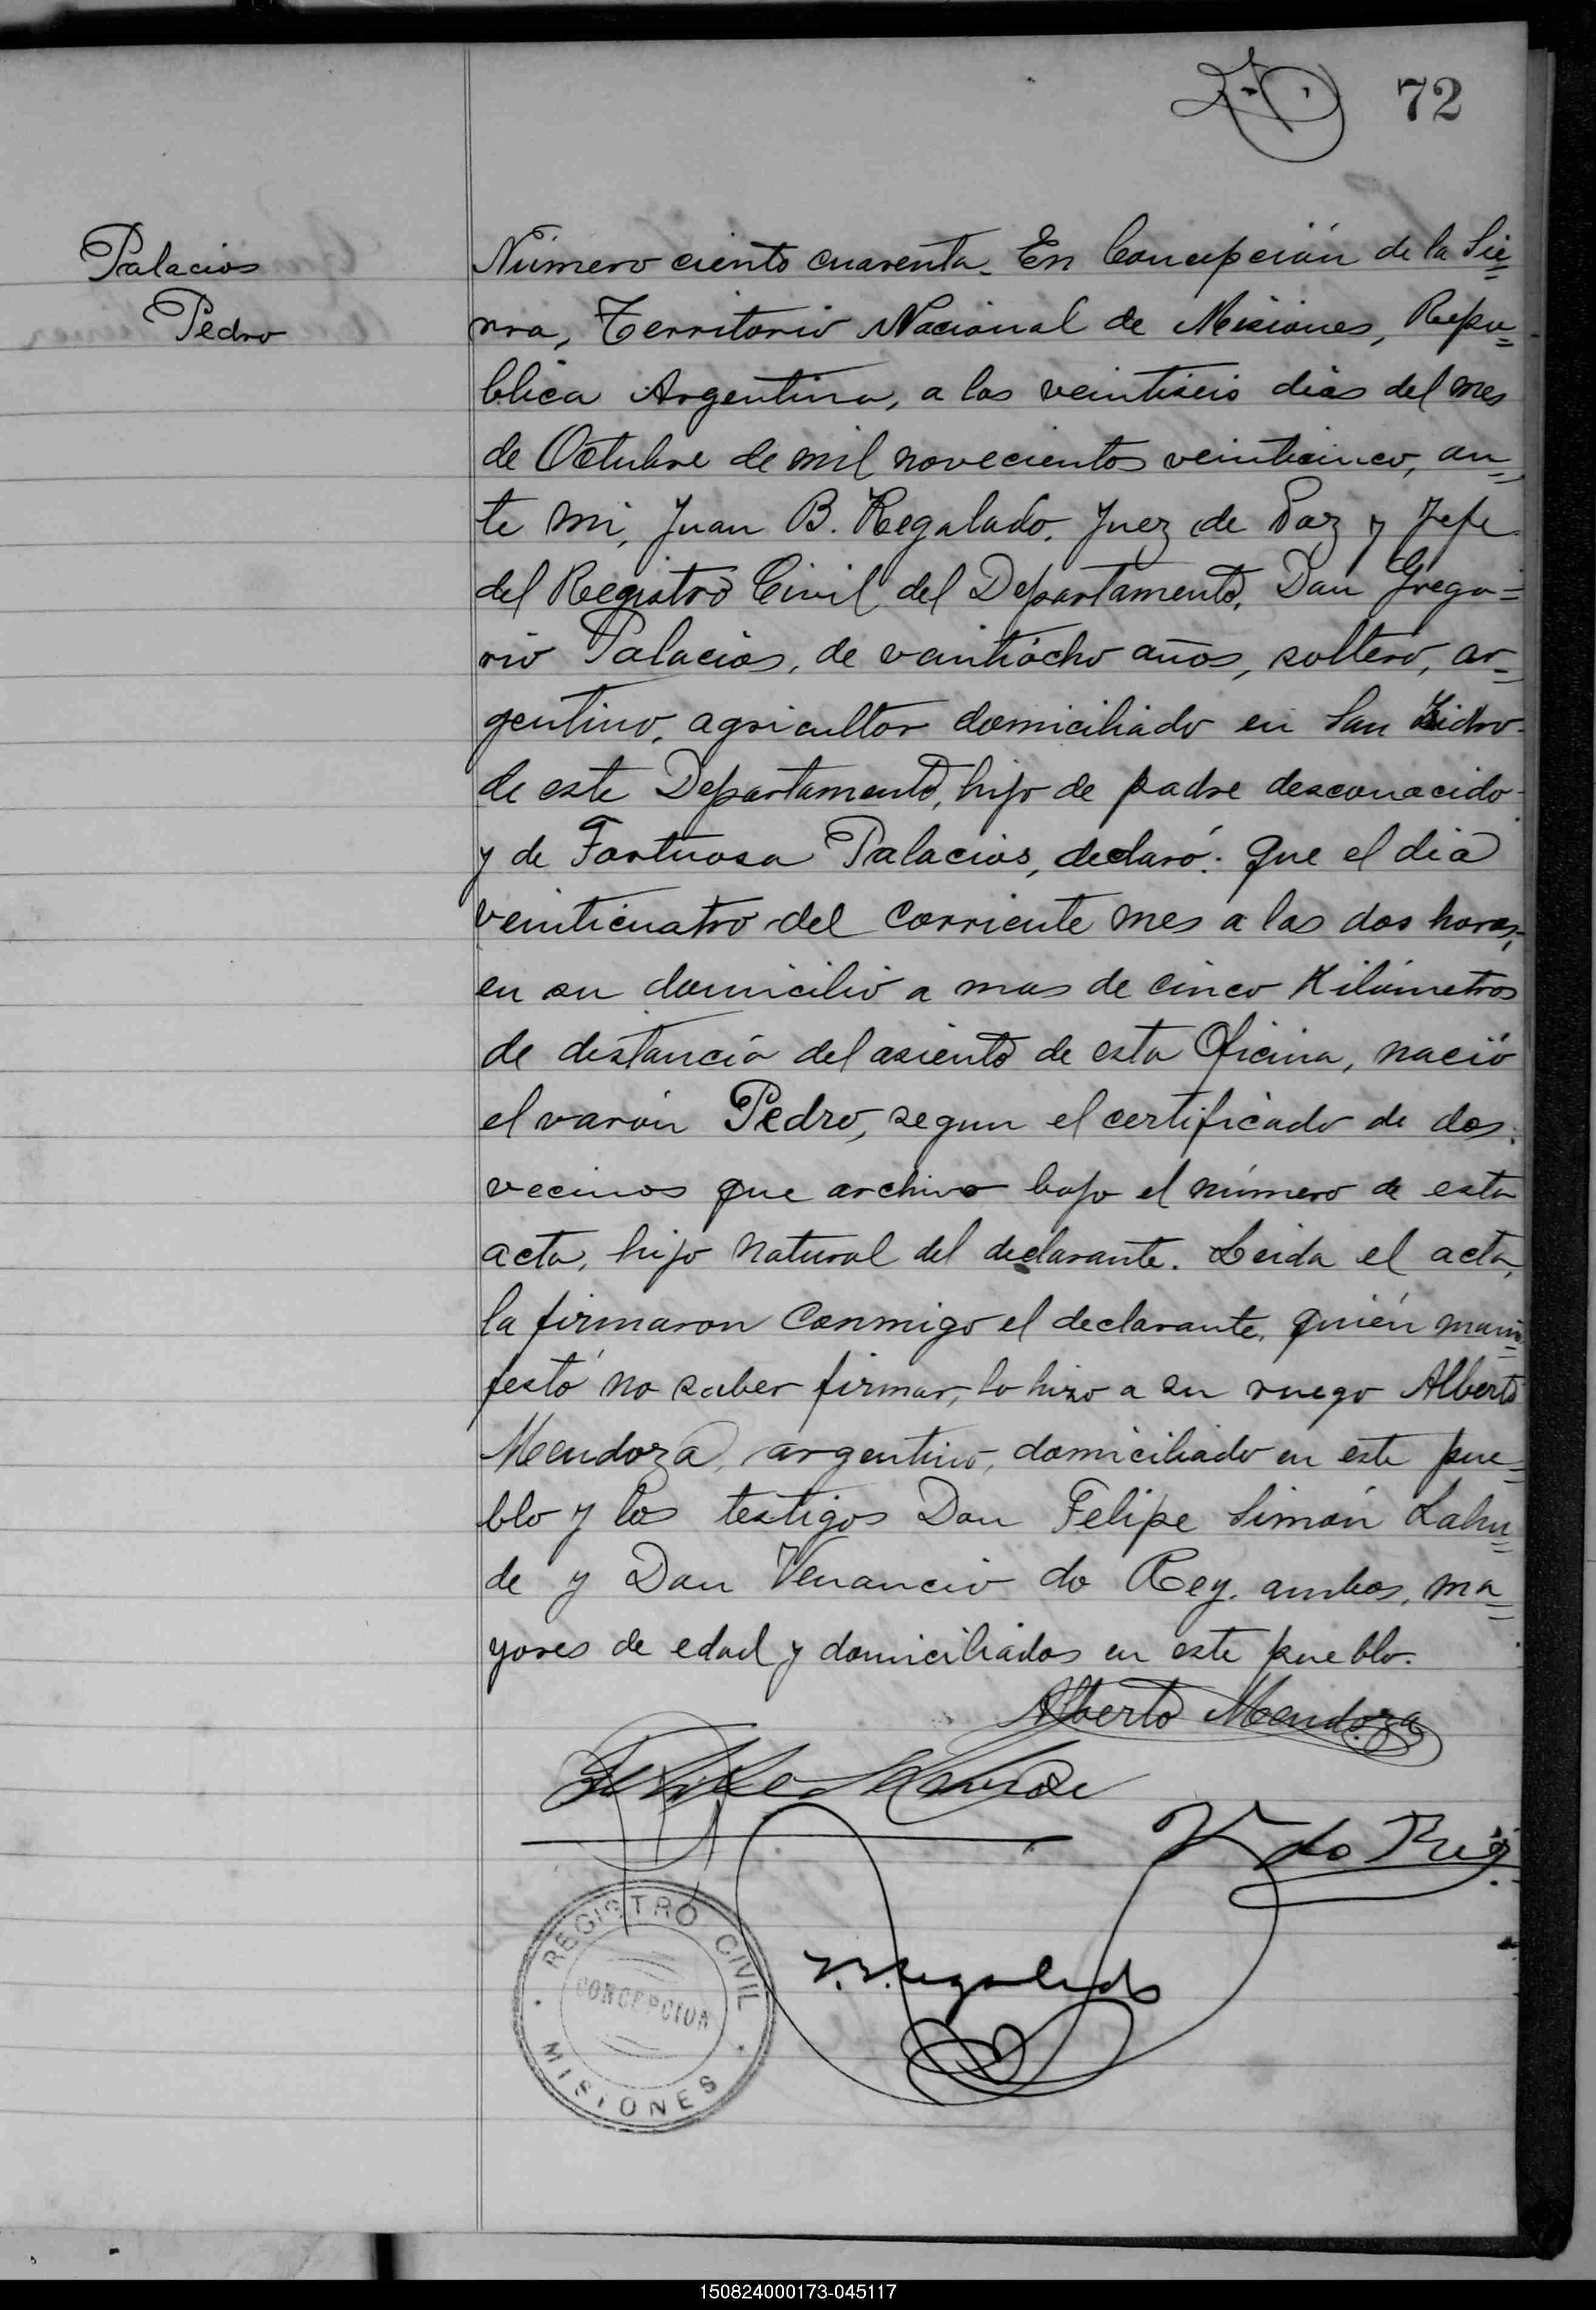 72
Palacios
Pedro
Número ciento cuarenta. En Concepción de la Sie=
rra, Territorio Nacional de Misiones, Repu=
blica Argentina, a los veintiseis dias del mes
de Octubre de mil novecientos veinticinco, an=
te mi, Juan B. Regalado, Juez de Paz y Jefe
del Registro Civil del Departamento, Don Grego=
rio Palacios, de veintiocho años, soltero, ar=
gentino, agricultor domiciliado en San Isidro
de este Departamento, hijo de padre desconocido
y de Fortuosa Palacios, declaró: Que el dia
veinticuatro del corriente mes a las dos horas,
en su domicilio a mas de cinco Kilómetros
de distancia del asiento de esta Oficina, nació
el varón Pedro, segun el certificado de dos
vecinos que archivo bajo el número de esta
acta, hijo natural del declarante. Leida el acta,
la firmaron conmigo el declarante, quién mani=
festó no saber firmar, lo hizo a su ruego Alberto
Mendoza, argentino, domiciliado en este pue=
blo y los testigos Don Felipe Simón Lahu=
de y Don Venancio do Rey, ambos, ma=
yores de edad y domiciliados en este pueblo.
Alberto Mendoza
Felipe S Lahude
V do Rey
J.B. Regalado
REGISTRO CIVIL
CONCEPCION
MISIONES
150824000173-045117